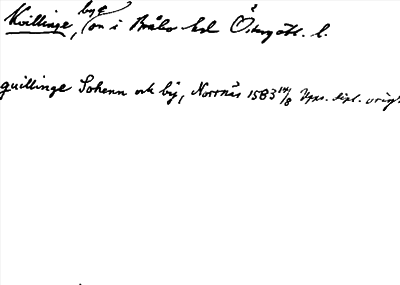 bya
Kvillinge, (on i Bråbo hd Östergötl. l.
quillinge Sohenn och by, Norrnäs 1583 14/8 Upps. dipl. orig.